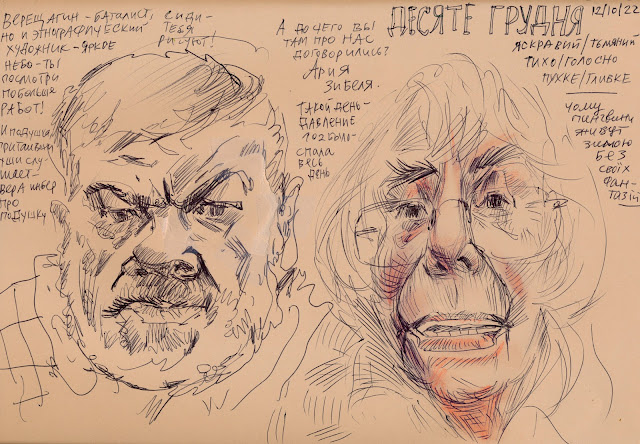 ВЕРЕЩАГИН - БАТАЛИСТ,
НО И ЭТНОГРАФИЧЕСКИЙ
ХУДОЖНИК - ЯРКОЕ
НЕБО - ТЫ
ПОСМОТРИ
ПОБОЛЬШЕ
РАБОТ!
И ПОДУШКА
УШИ СЛУ-
ШАЕТ -
ВЕРА
ПРО
ПОДУШКУ
СИДИ -
ТЕБЯ
РИСУЮТ!
А ДО ЧЕГО ВЫ
ТАМ ПРО НАС
ДОГОВОРИЛИСЬ?
АРИЯ
ЗИБЕЛЯ.
ТАКОЙ ДЕНЬ -
ДАВЛЕНИЕ
102 БОЛО -
СПАЛА
ВЕСЬ
ДЕНЬ
ДЕСЯТЕ ГРУДНЯ
12/10/22
ЯСКРАВИЙ/ТЬМЯНИЙ
ТИХО/ГОЛОСНО
ПУХКЕ/ГЛИВКЕ
ЧОМУ
ПІНГВІНИ
ЖИВУТ
ЗИМОЮ
БЕЗ
СВОЇХ
ФАН-
ТАЗІЙ